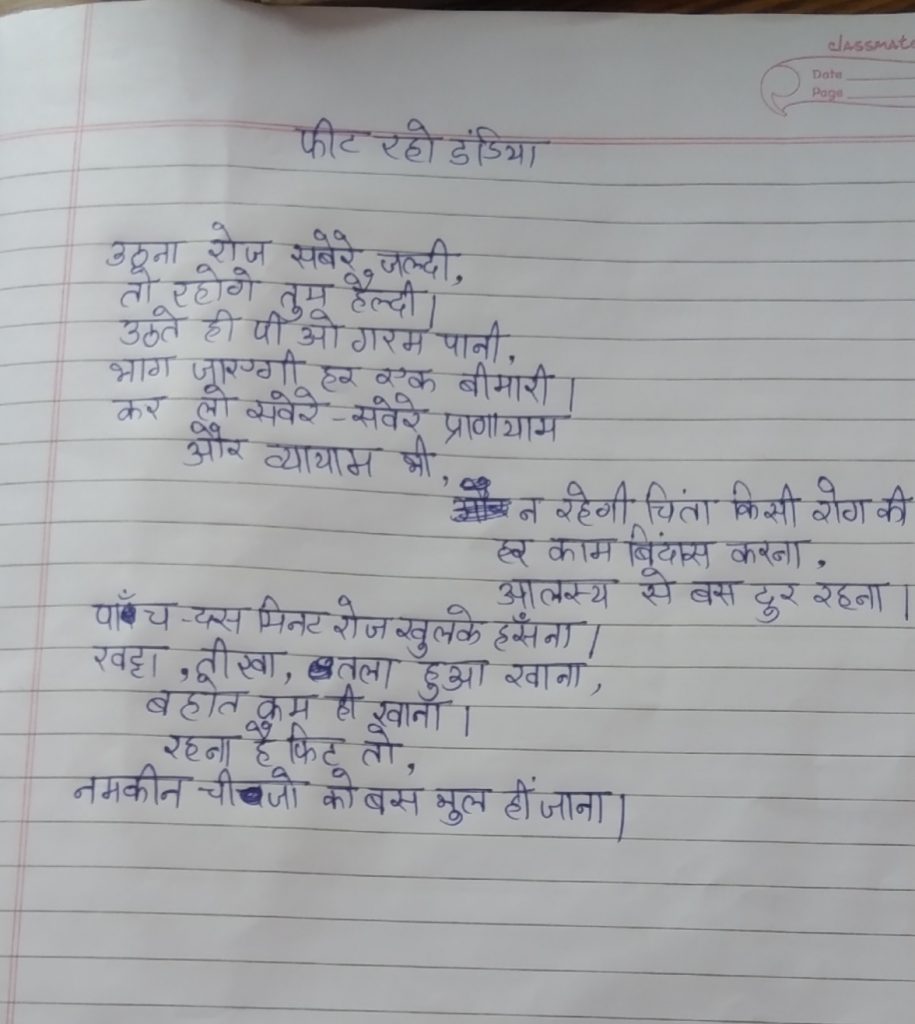 classmate
Date
Page
फीट रहो इंडिया
उठना रोज सबेरे जल्दी,
तो रहोगे तुम हैल्दी।
उठते ही पी ओ गरम पानी,
भाग जाएगी हर एक बीमारी।
कर लो सवेरे-सवेरे प्राणायाम
और व्यायाम भी,
न रहेगी चिंता किसी रोग की
हर काम बिंदास करना,
आलस्य से बस दुर रहना।
पाँच-दस मिनट रोज खुलके हँसना।
खट्टा, तीखा, तला हुआ खाना,
बहोत कम ही खाना।
रहना है फिट तो,
नमकीन चीजो को बस भुल हीं जाना।